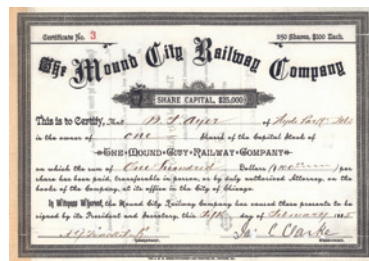 Certificate No. 3 250 Shares, $100 Each.
The Mound City Railway Company
SHARE CAPITAL, $25,000
This is to Certify, That of Hyde Park
is the owner of one Share of the Capital Stock of
THE MOUND CITY RAILWAY COMPANY
on which the sum of One Hundred Dollars ($100) per
share has been paid, transferable in person, or by duly authorized Attorney, on the
books of the Company, at its office in the City of Chicago.
In Witness Whereof, the Mound City Railway Company has caused these presents to be
signed by its President and Secretary, this fifth day of February
Clarke